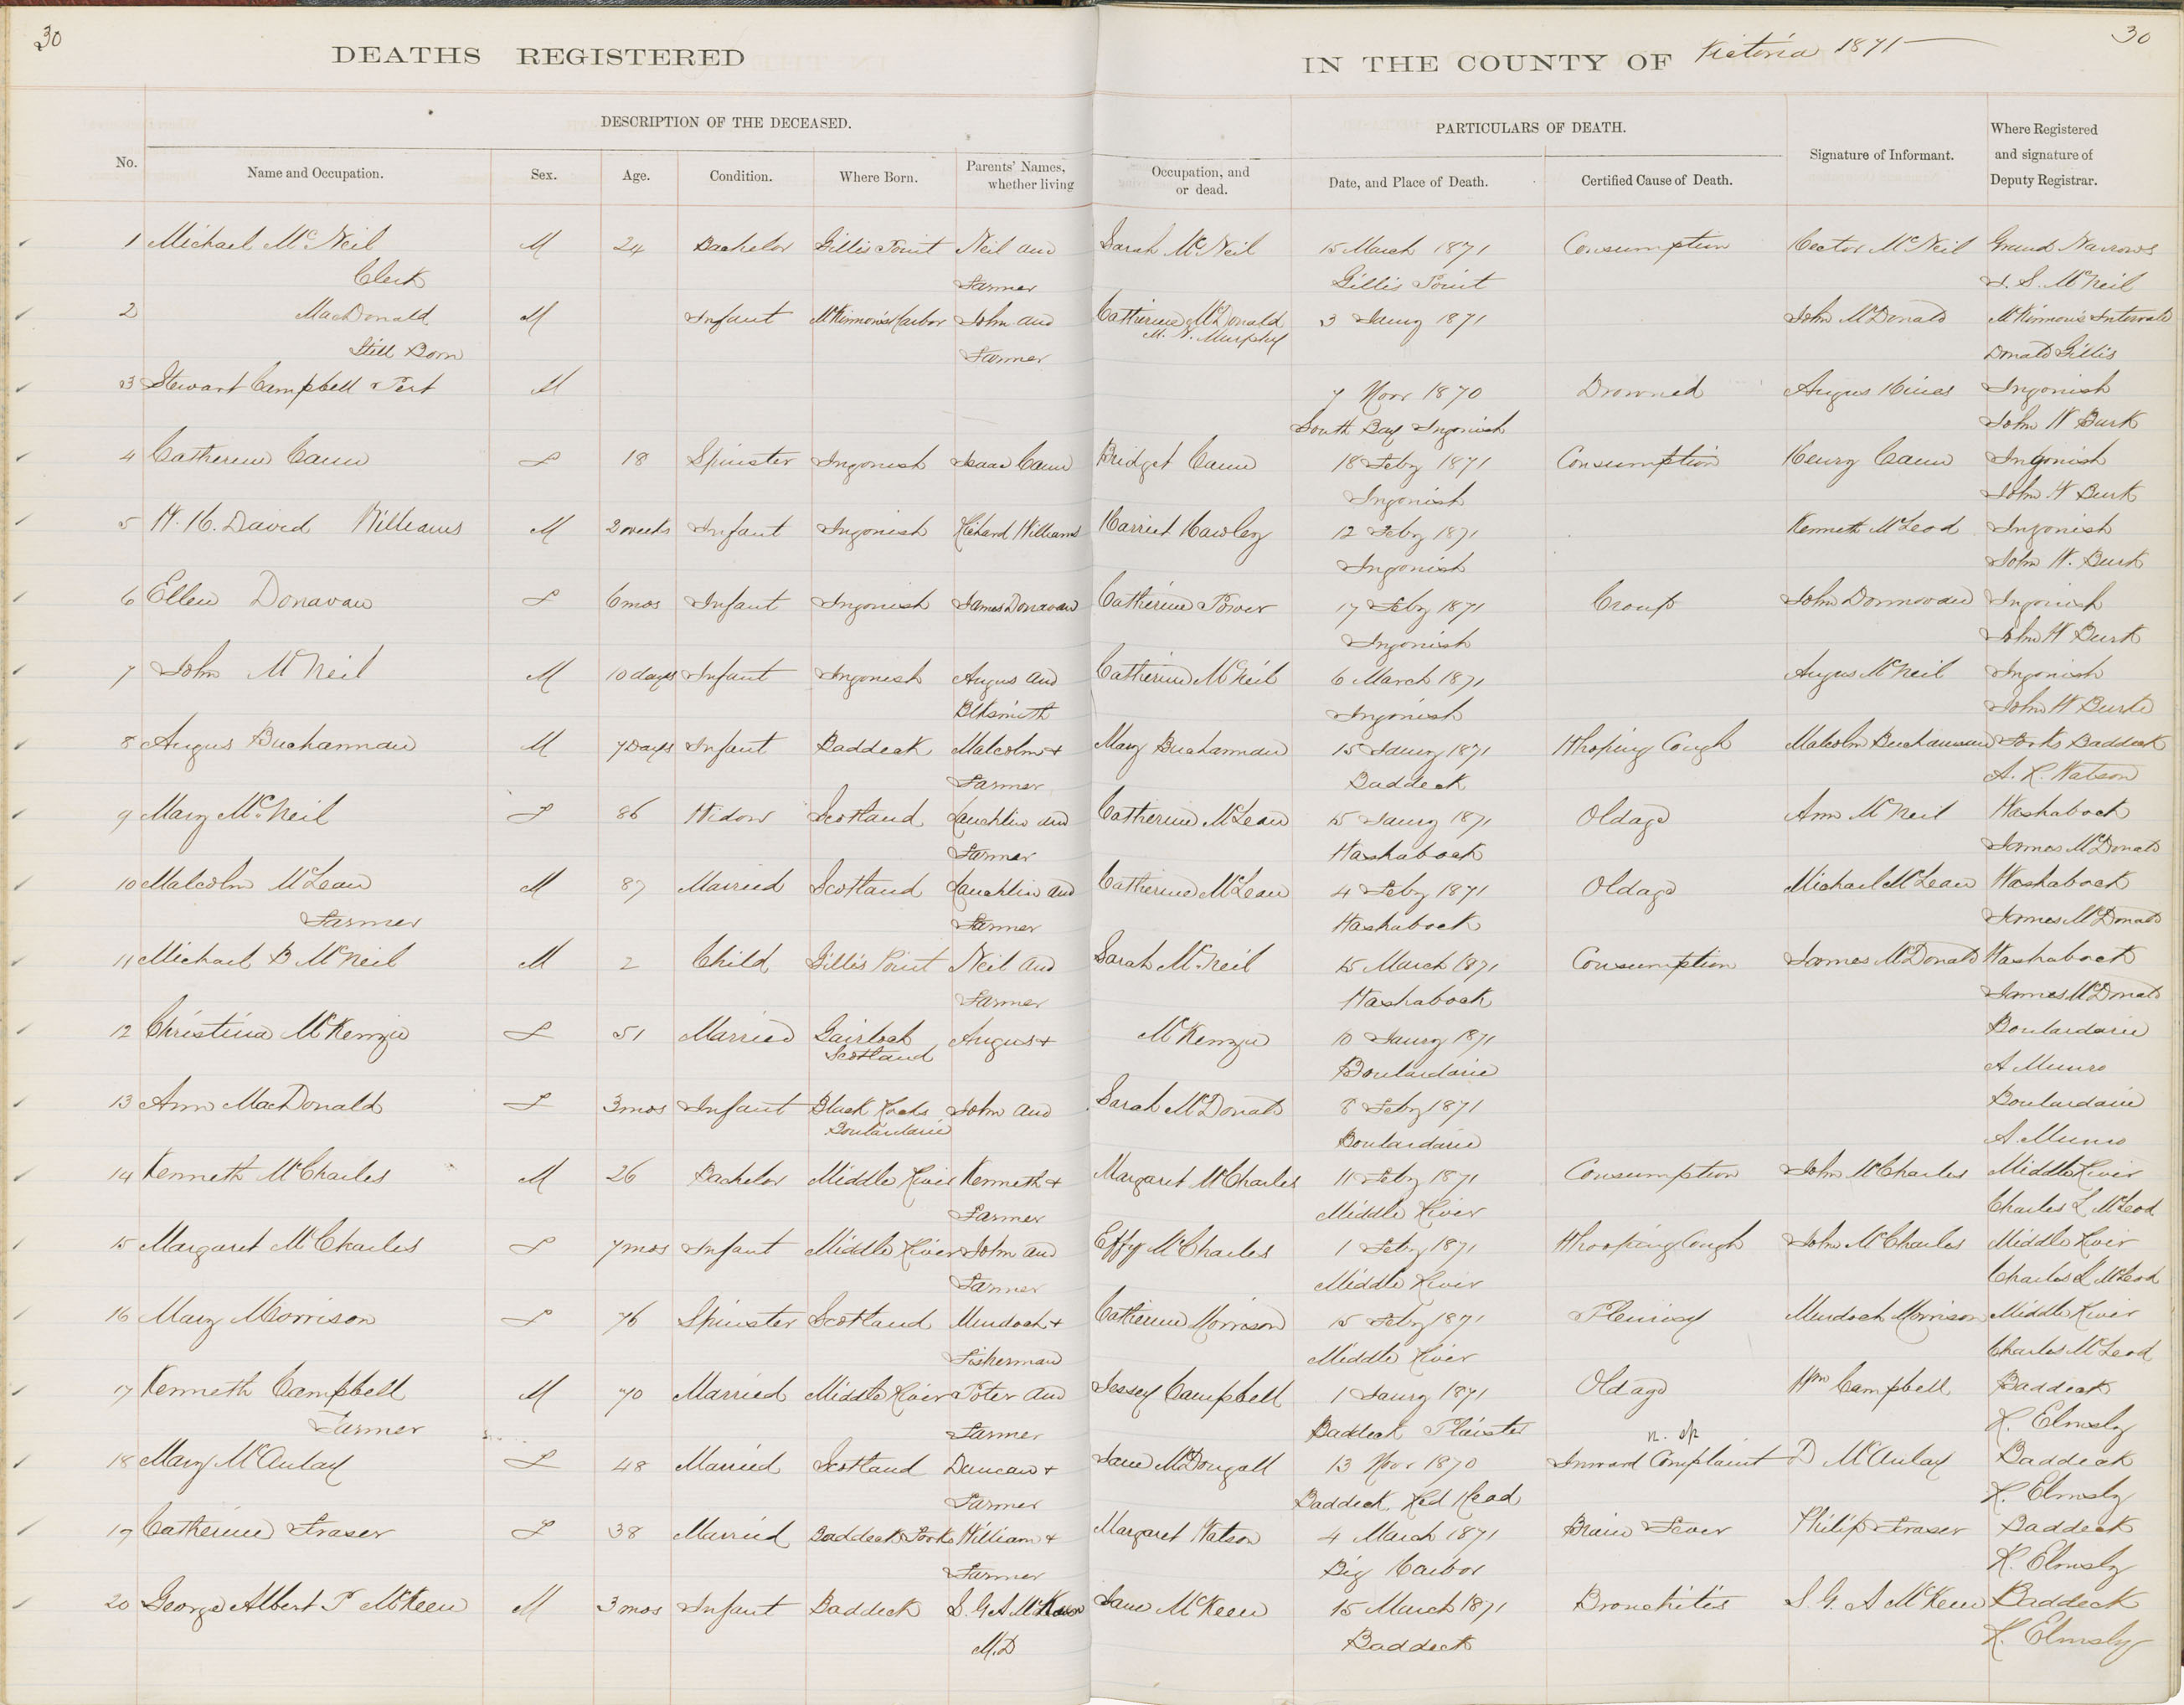 30
30
DEATHS REGISTERED IN THE COUNTY OF Victoria 1871
DESCRIPTION OF THE DECEASED.
PARTICULARS OF DEATH.
No. Name and Occupation. Sex. Age. Condition. Where Born. Parents' Names, whether living Occupation, and or dead. Date, and Place of Death. Certified Cause of Death. Signature of Informant. Where Registered and signature of Deputy Registrar.
1 Michael McNeil M 24 Bachelor Gillis Point Neil and Sarah McNeil 15 March 1871 Consumption Hector McNeil Grand Narrows
Clerk Farmer Gillis Point S. McNeil
2 MacDonald M Infant McKinnon's Harbor John and Catherine McDonald 3 Jany 1871 John McDonald McKinnon's Intervale
M. N. Murphy
Still Born Farmer Donald Gillis
3 Stewart Campbell M 7 Novr 1870 Drowned Angus Hines Ingonish
South Bay Ingonish John W Burk
4 Catherine Cann F 18 Spinster Ingonish Isaac Cann Bridget Cann 18 Feby 1871 Consumption Henry Cann Ingonish
Ingonish John W Burk
5 W. H. David Williams M 2 weeks Infant Ingonish Richard Williams Harriet Hawley 12 Feby 1871 Kenneth McLeod Ingonish
Ingonish John W. Burk
6 Ellen Donavan F 6 mos Infant Ingonish James Donavan Catherine Power 17 Feby 1871 Croup John Donnovan Ingonish
Ingonish John W Burk
7 John McNeil M 10 days Infant Ingonish Angus and Catherine McNeil 6 March 1871 Angus McNeil Ingonish
Blksmith Ingonish John W Burke
8 Angus Buchannan M 7 Days Infant Baddeck Malcolm + Mary Buchannan 15 Jany 1871 Whoping Cough Malcolm Buchannan Forks Baddeck
Farmer Baddeck A. R. Watson
9 Mary McNeil F 86 Widow Scotland Lauchlin and Catherine McLean 15 Jany 1871 Oldage Ann McNeil Washaback
Farmer Washaback James McDonald
10 Malcolm McLean M 87 Married Scotland Lauchlin and Catherine McLean 4 Feby 1871 Oldage Michael McLean Washaback
Farmer Farmer Washaback James McDonald
11 Michael B McNeil M 2 Child Gillis Point Neil and Sarah McNeil 15 March 1871 Consumption James McDonald Washaback
Farmer Washaback James McDonald
12 Christina McKenzie F 51 Married Gairloch Angus + McKenzie 10 Jany 1871 Boulardarie
Scotland Boulardarie A Munro
13 Ann MacDonald F 3 mos Infant Black Rocks John and Sarah McDonald 8 Feby 1871 Boulardarie
Boulardarie Boulardarie A. Munro
14 Kenneth McCharles M 26 Bachelor Middle River Kenneth + Margaret McCharles 11 Feby 1871 Consumption John McCharles Middle River
Farmer Middle River Charles L McLeod
15 Margaret McCharles F 7 mos Infant Middle River John and Effy McCharles 1 Feby 1871 Whooping Cough John McCharles Middle River
Farmer Middle River Charles L McLeod
16 Mary Morrison F 76 Spinster Scotland Murdoch + Catherine Morrison 15 Feby 1871 Pleurisy Murdoch Morrison Middle River
Fisherman Middle River Charles McLeod
17 Kenneth Campbell M 70 Married Middle River Peter and Jessey Campbell 1 Jany 1871 Old age Wm Campbell Baddeck
Farmer Farmer Baddeck Plaister R. Elmsly
18 Mary McAulay F 48 Married Scotland Duncan + Jane McDougall 13 Novr 1870 Inward Complaint D McAulay Baddeck
Farmer Baddeck Red Head R. Elmsly
19 Catherine Fraser F 38 Married Baddeck Forks William + Margaret Watson 4 March 1871 Brain Fever Philip Fraser Baddeck
Farmer Big Harbor R. Elmsly
20 George Albert T McKeen M 3 mos Infant Baddeck S. G. A McKeen Jane McKeen 15 March 1871 Bronchitis S. G. A McKeen Baddeck
M.D Baddeck R. Elmsly